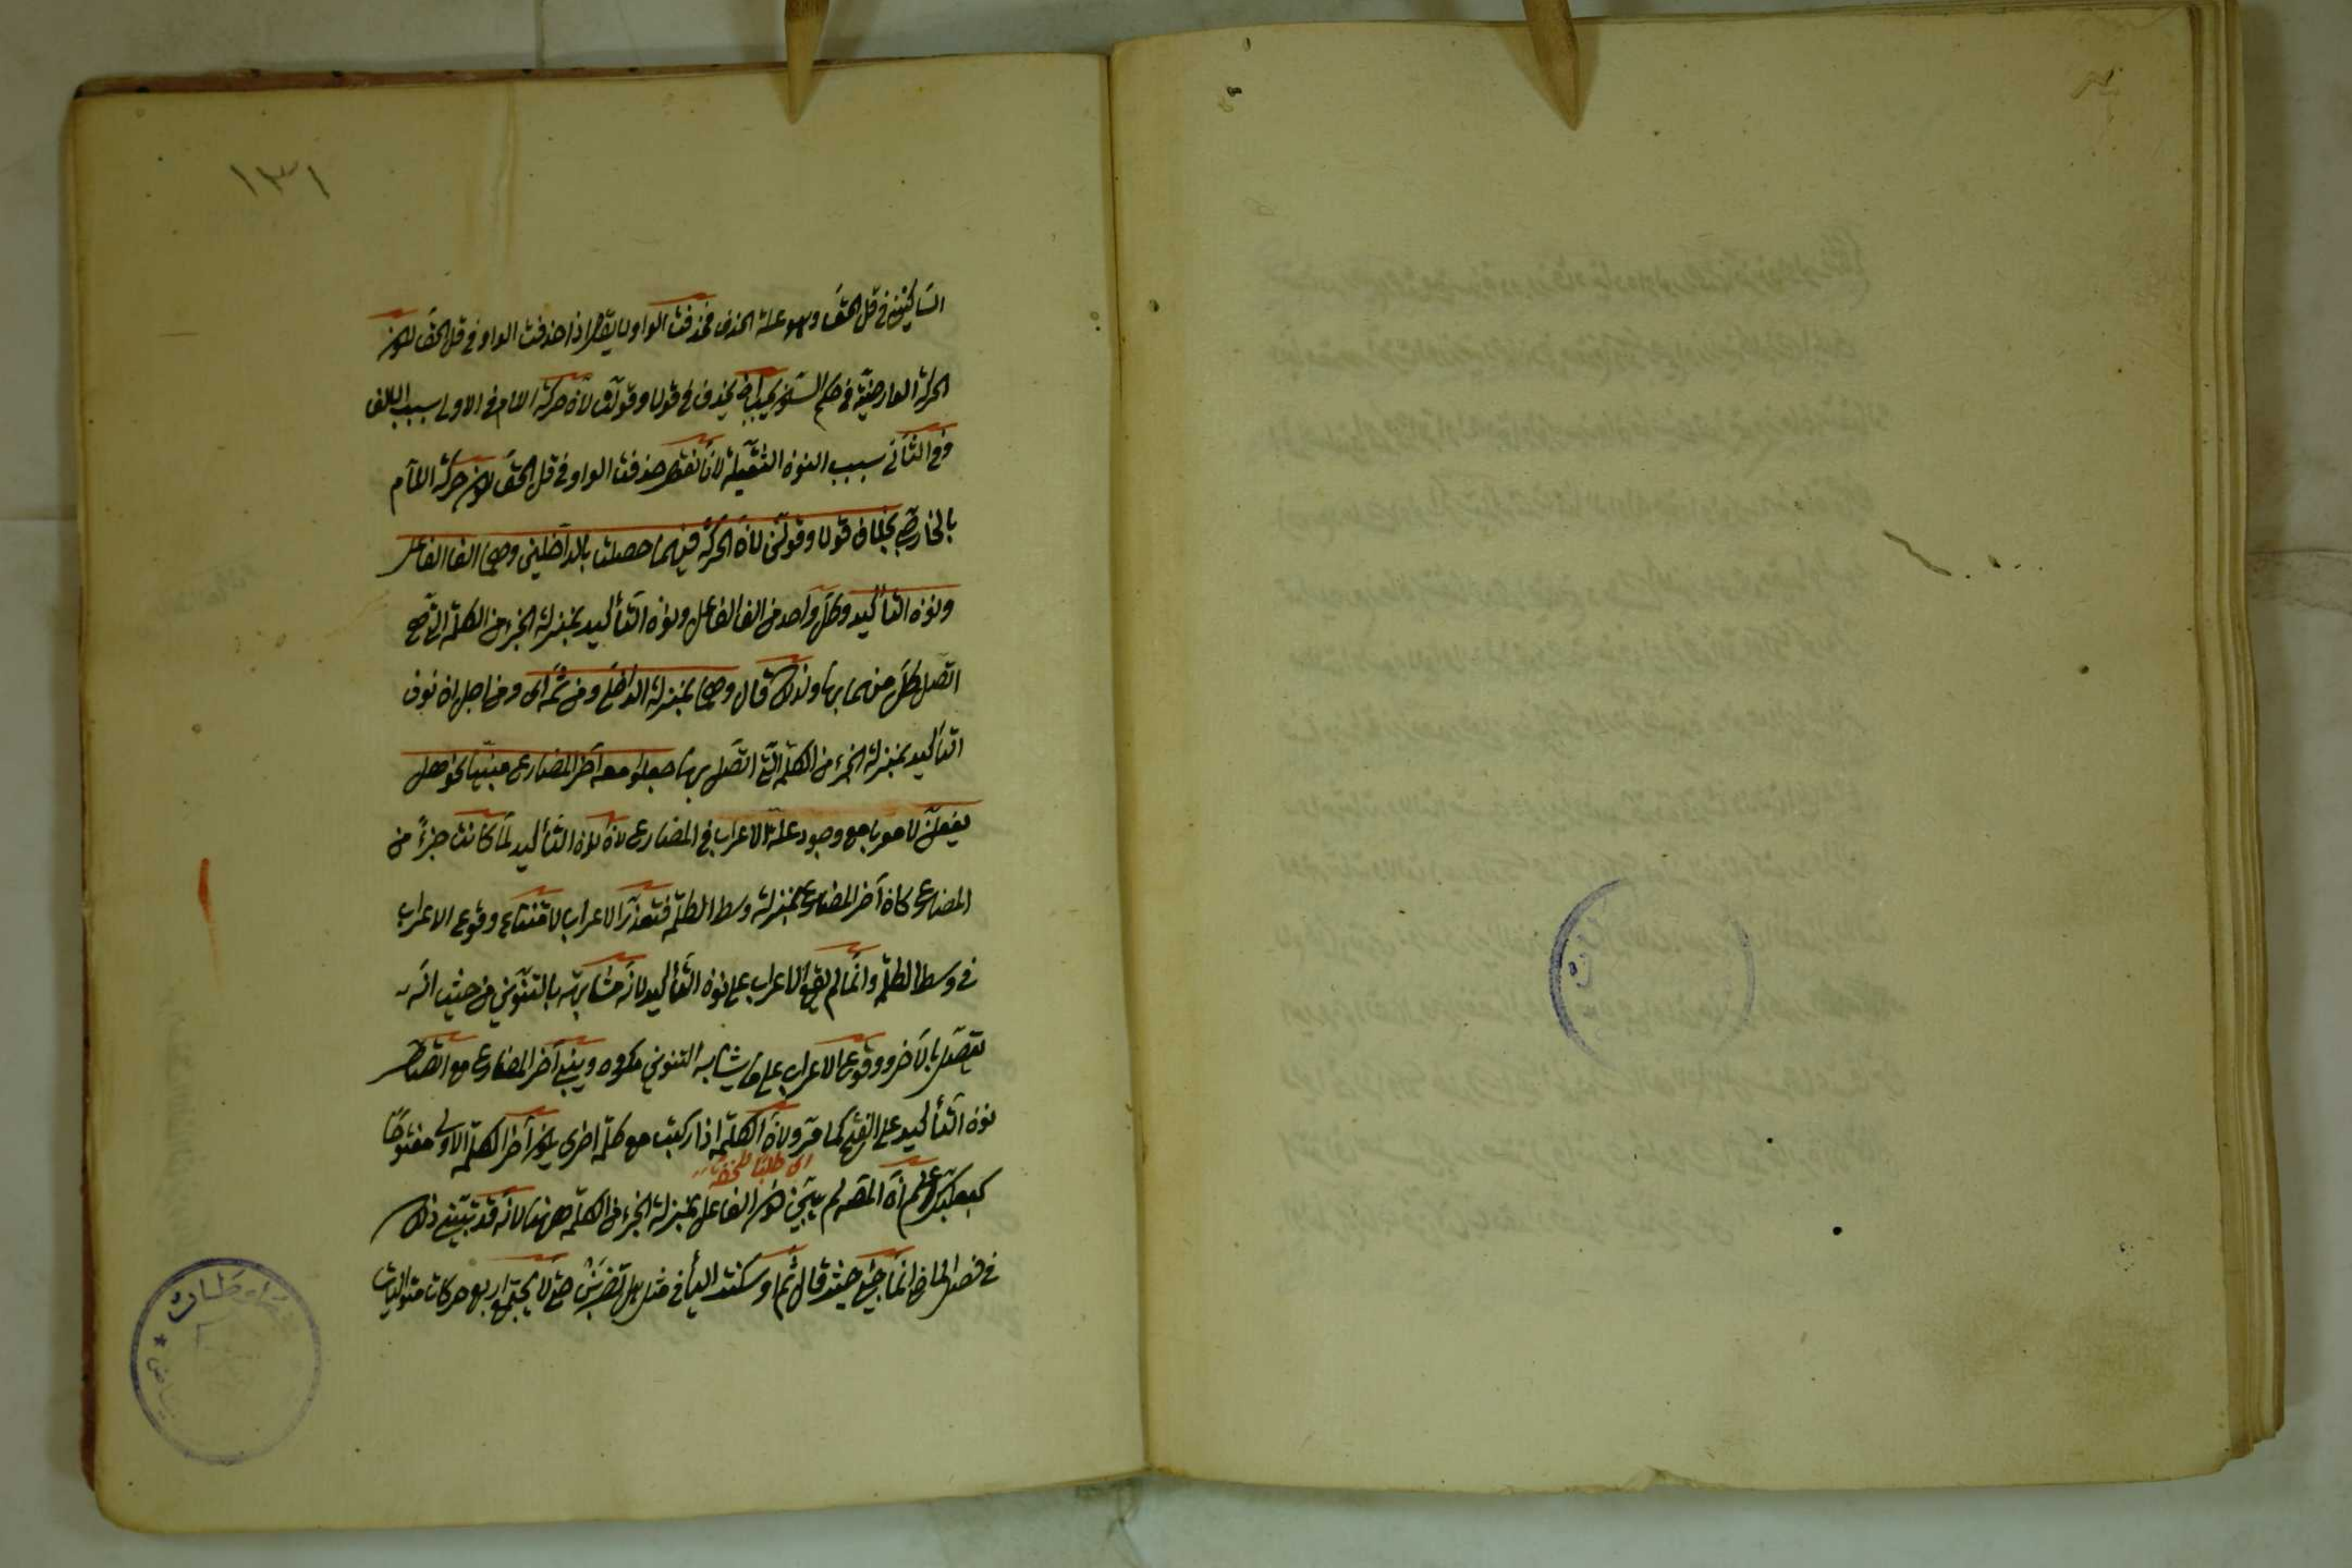 ١٣١
الساكنين في قل الحق وهو علة الحذف فحذفت الواو لا يقال اذا حذفت الواو في قل الحق لكون
الحركة العارضية في حكم السكون يجب ان يحذف في قولا وقولن لان حركة اللام في الاولى بسبب الالف
وفي الثاني بسبب النون الثقيلة لانا نقول حذفت الواو في قل الحق لكون حركة اللام
بالخارجي بخلاف قولا وقولن لان الحركة فيهما حصلت بالداخلين وهما الف الفاعل
ونون التأكيد وكل واحد من الف الفاعل ونون التأكيد بمنزلة الجزء من الكلمة التي
اتصل كل منهما بها ولذلك قال وهما بمنزلة الداخلي ومن ثمه اى ومن اجل ان نون
التأكيد بمنزلة الجزء من الكلمة التي اتصل بها جعلوا معه آخر المضارع مبنيا نحو هل
يفعلن لا معربا مع وجود علة الاعراب في المضارع لان نون التأكيد لما كانت جزءً من
المضارع كان آخر المضارع بمنزلة وسط الكلمة فتعذر الاعراب لامتناع وقوع الاعراب
في وسط الكلمة وانما لم يقع الاعراب على نون التأكيد لانه مشابهة بالتنوين من حيث انه
يتصل بالآخر ووقوع الاعراب على ما يشابه التنوين مكروه ويبنى آخر المضارع مع اتصال
نون التأكيد على الفتح كما مر ولان الكلمة اذا ركبت مع كلمة اخرى يكون آخر الكلمة الاولى مفتوحًا
اى طلبا للخفة
كبعلبك اعلم ان المصـ لم يبين كون الفاعل بمنزلة الجزء من الكلمة ههنا لانه قد تبين ذلك
في فصل الماضى حيث قال ثم اوسكنت الياء في مثل هل تضربن حتى لا يجتمع اربع حركات متواليات